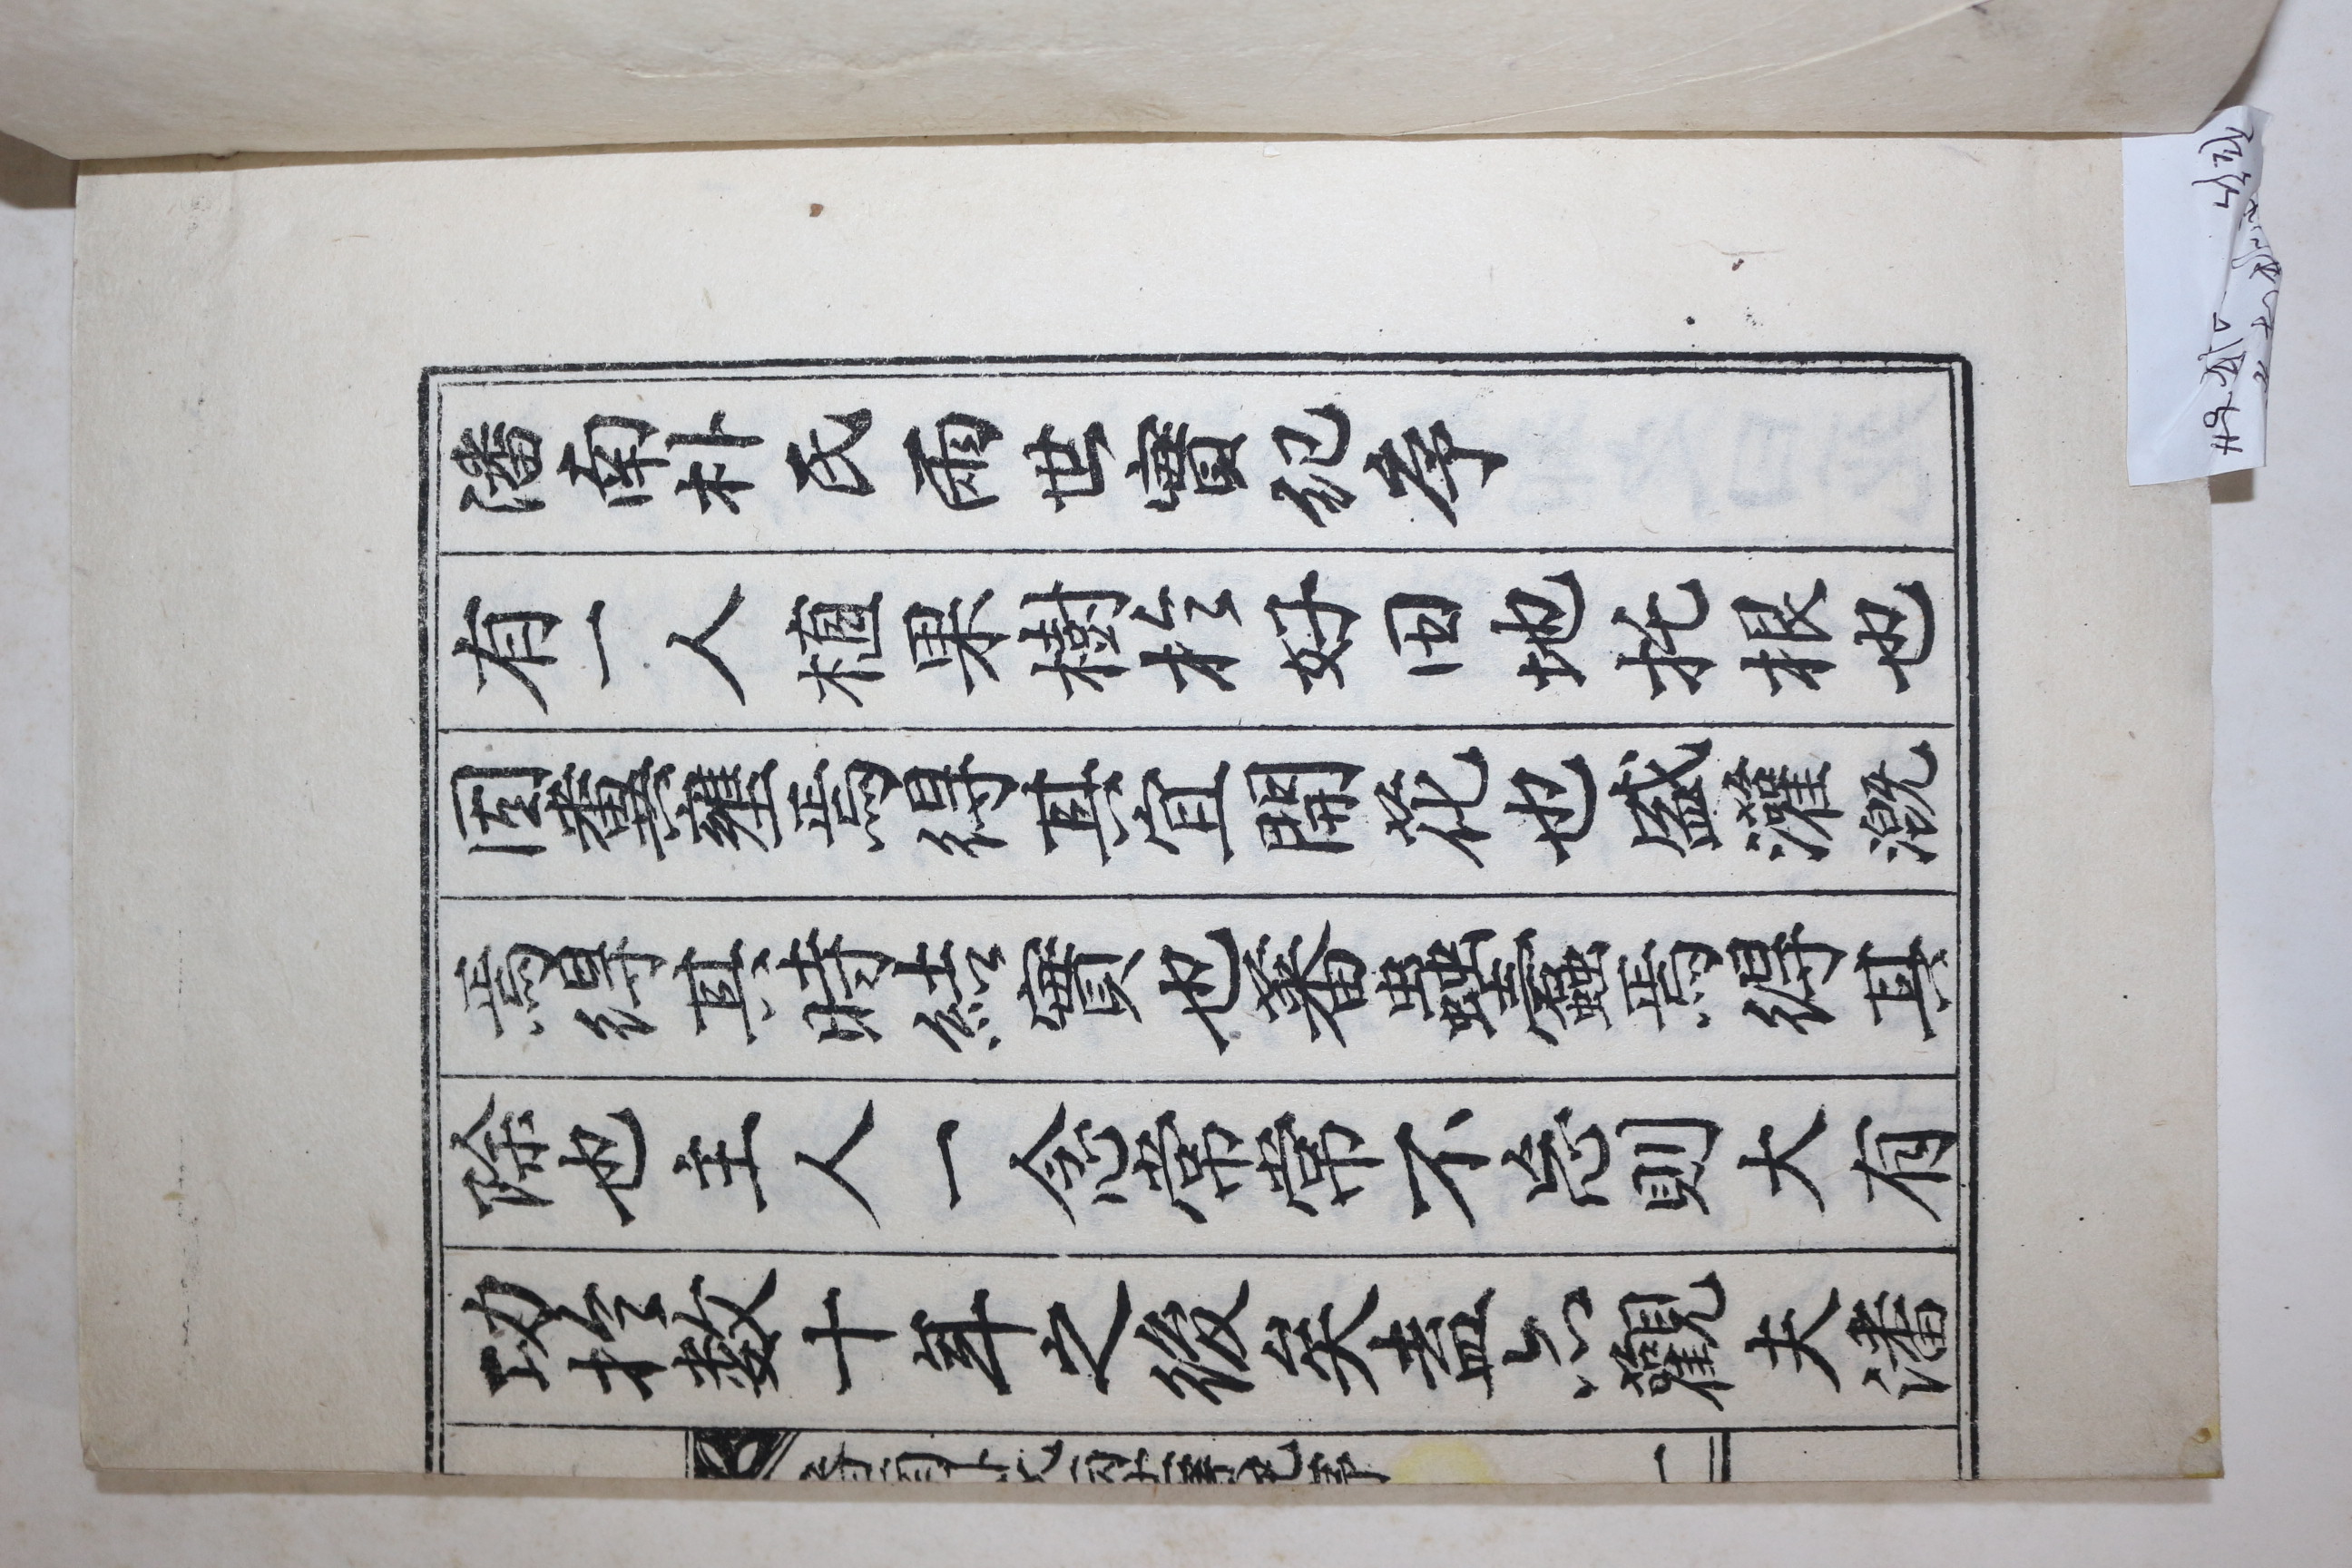 潘南朴氏兩世實紀序
有一人植果樹扵好田地托根也
固糞壅焉得其宜開花也盛灌漑
焉得其時結實也蕃蟲蠧焉得其
除也主人一念常常不忘則大有
功扵数十年之後矣盍亦觀夫潘
一